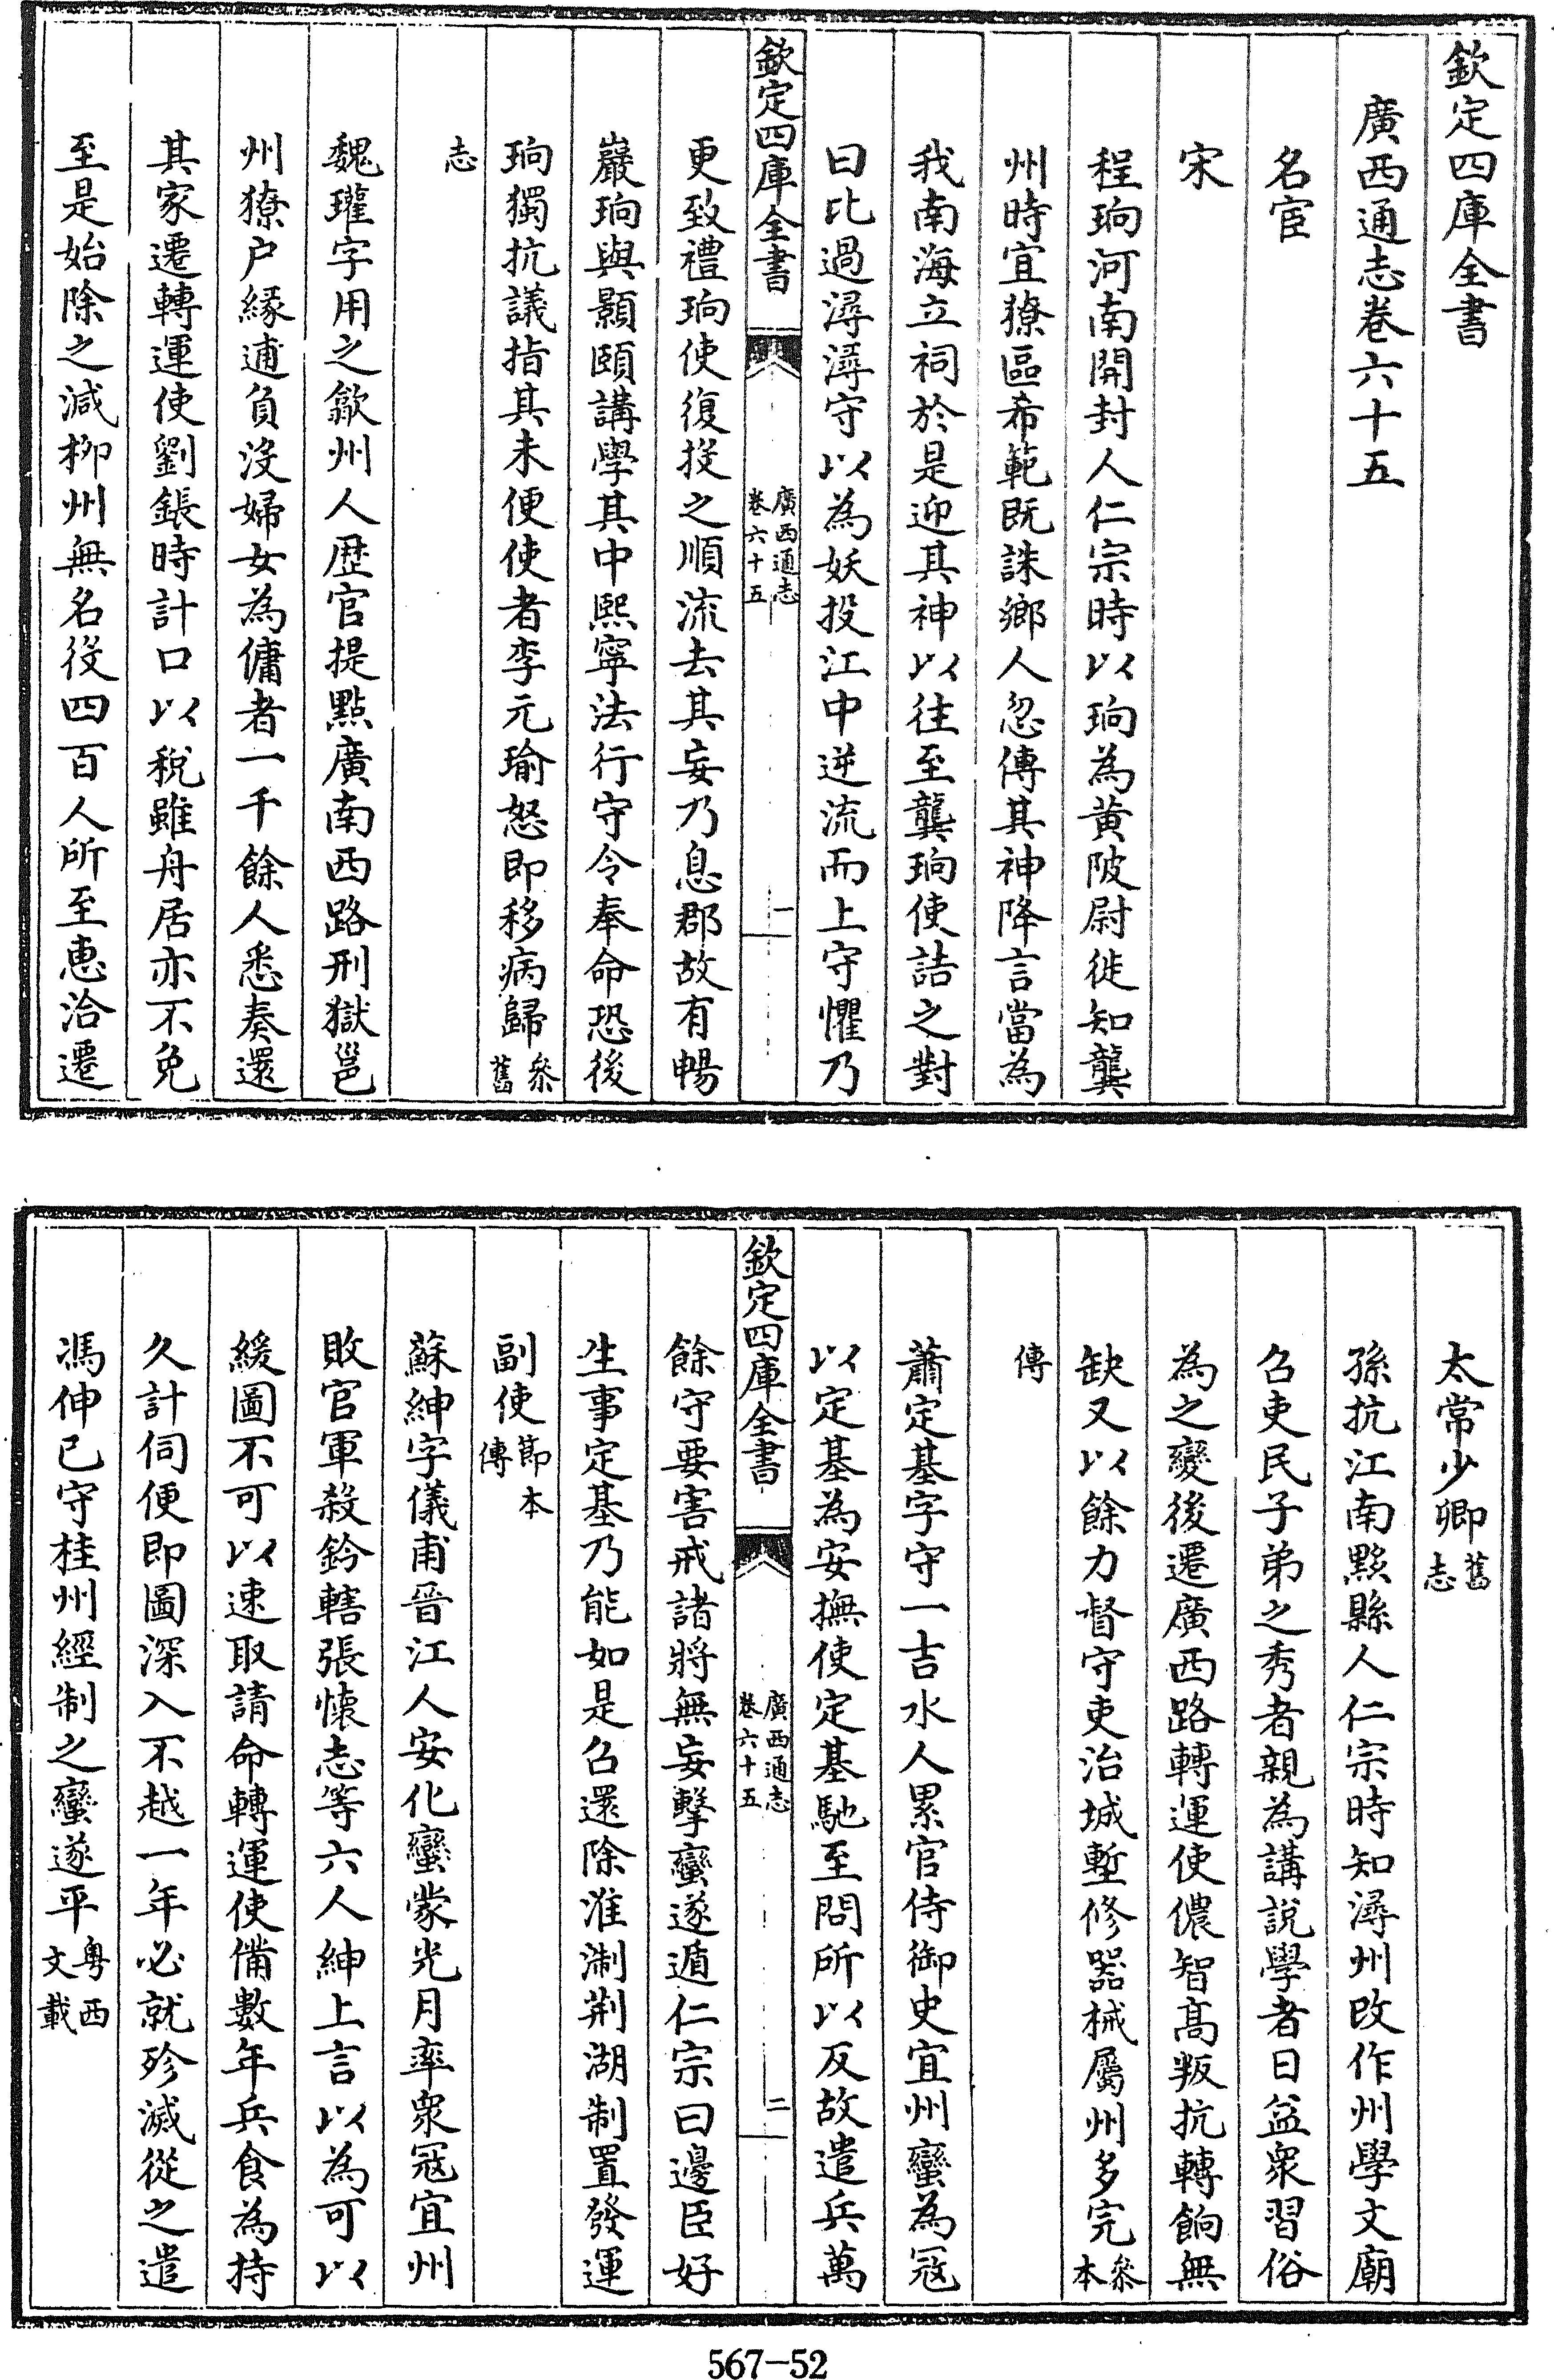 欽定四庫全書
廣西通志卷六十五
名宦
宋
程珦河南開封人仁宗時以珦為黄陂尉徙知龔
州時宜獠區希範既誅鄉人忽傳其神降言當為
我南海立祠於是迎其神以往至龔珦使詰之對
曰比過潯潯守以為妖投江中逆流而上守懼乃
欽定四庫全書
廣西通志
卷六十五
一
更致禮珦使復投之順流去其妄乃息郡故有暢
巖珦與顥頤講學其中熙寧法行守令奉命恐後
珦獨抗議指其未便使者李元瑜怒即移病歸參舊
志
魏瓘字用之歙州人歷官提點廣南西路刑獄邕
州獠户緣逋負沒婦女為傭者一千餘人悉奏還
其家遷轉運使劉鋹時計口以稅雖舟居亦不免
至是始除之減柳州無名役四百人所至惠洽遷
太常少卿舊志
孫抗江南黟縣人仁宗時知潯州改作州學文廟
召吏民子弟之秀者親為講説學者日益衆習俗
為之變後遷廣西路轉運使儂智高叛抗轉餉無
缺又以餘力督守吏治城塹修器械屬州多完參本
傳
蕭定基字守一吉水人累官侍御史宜州蠻為冦
以定基為安撫使定基馳至問所以反故遣兵萬
欽定四庫全書
廣西通志
卷六十五
二
餘守要害戒諸將無妄擊蠻遂遁仁宗曰邊臣好
生事定基乃能如是召還除淮淛荆湖制置發運
副使節本傳
蘇紳字儀甫晉江人安化蠻蒙光月率衆冦宜州
敗官軍殺鈐轄張懷志等六人紳上言以為可以
緩圖不可以速取請命轉運使備數年兵食為持
久計伺便即圖深入不越一年必就殄滅從之遣
馮伸已守桂州經制之蠻遂平粵西文載
567-52